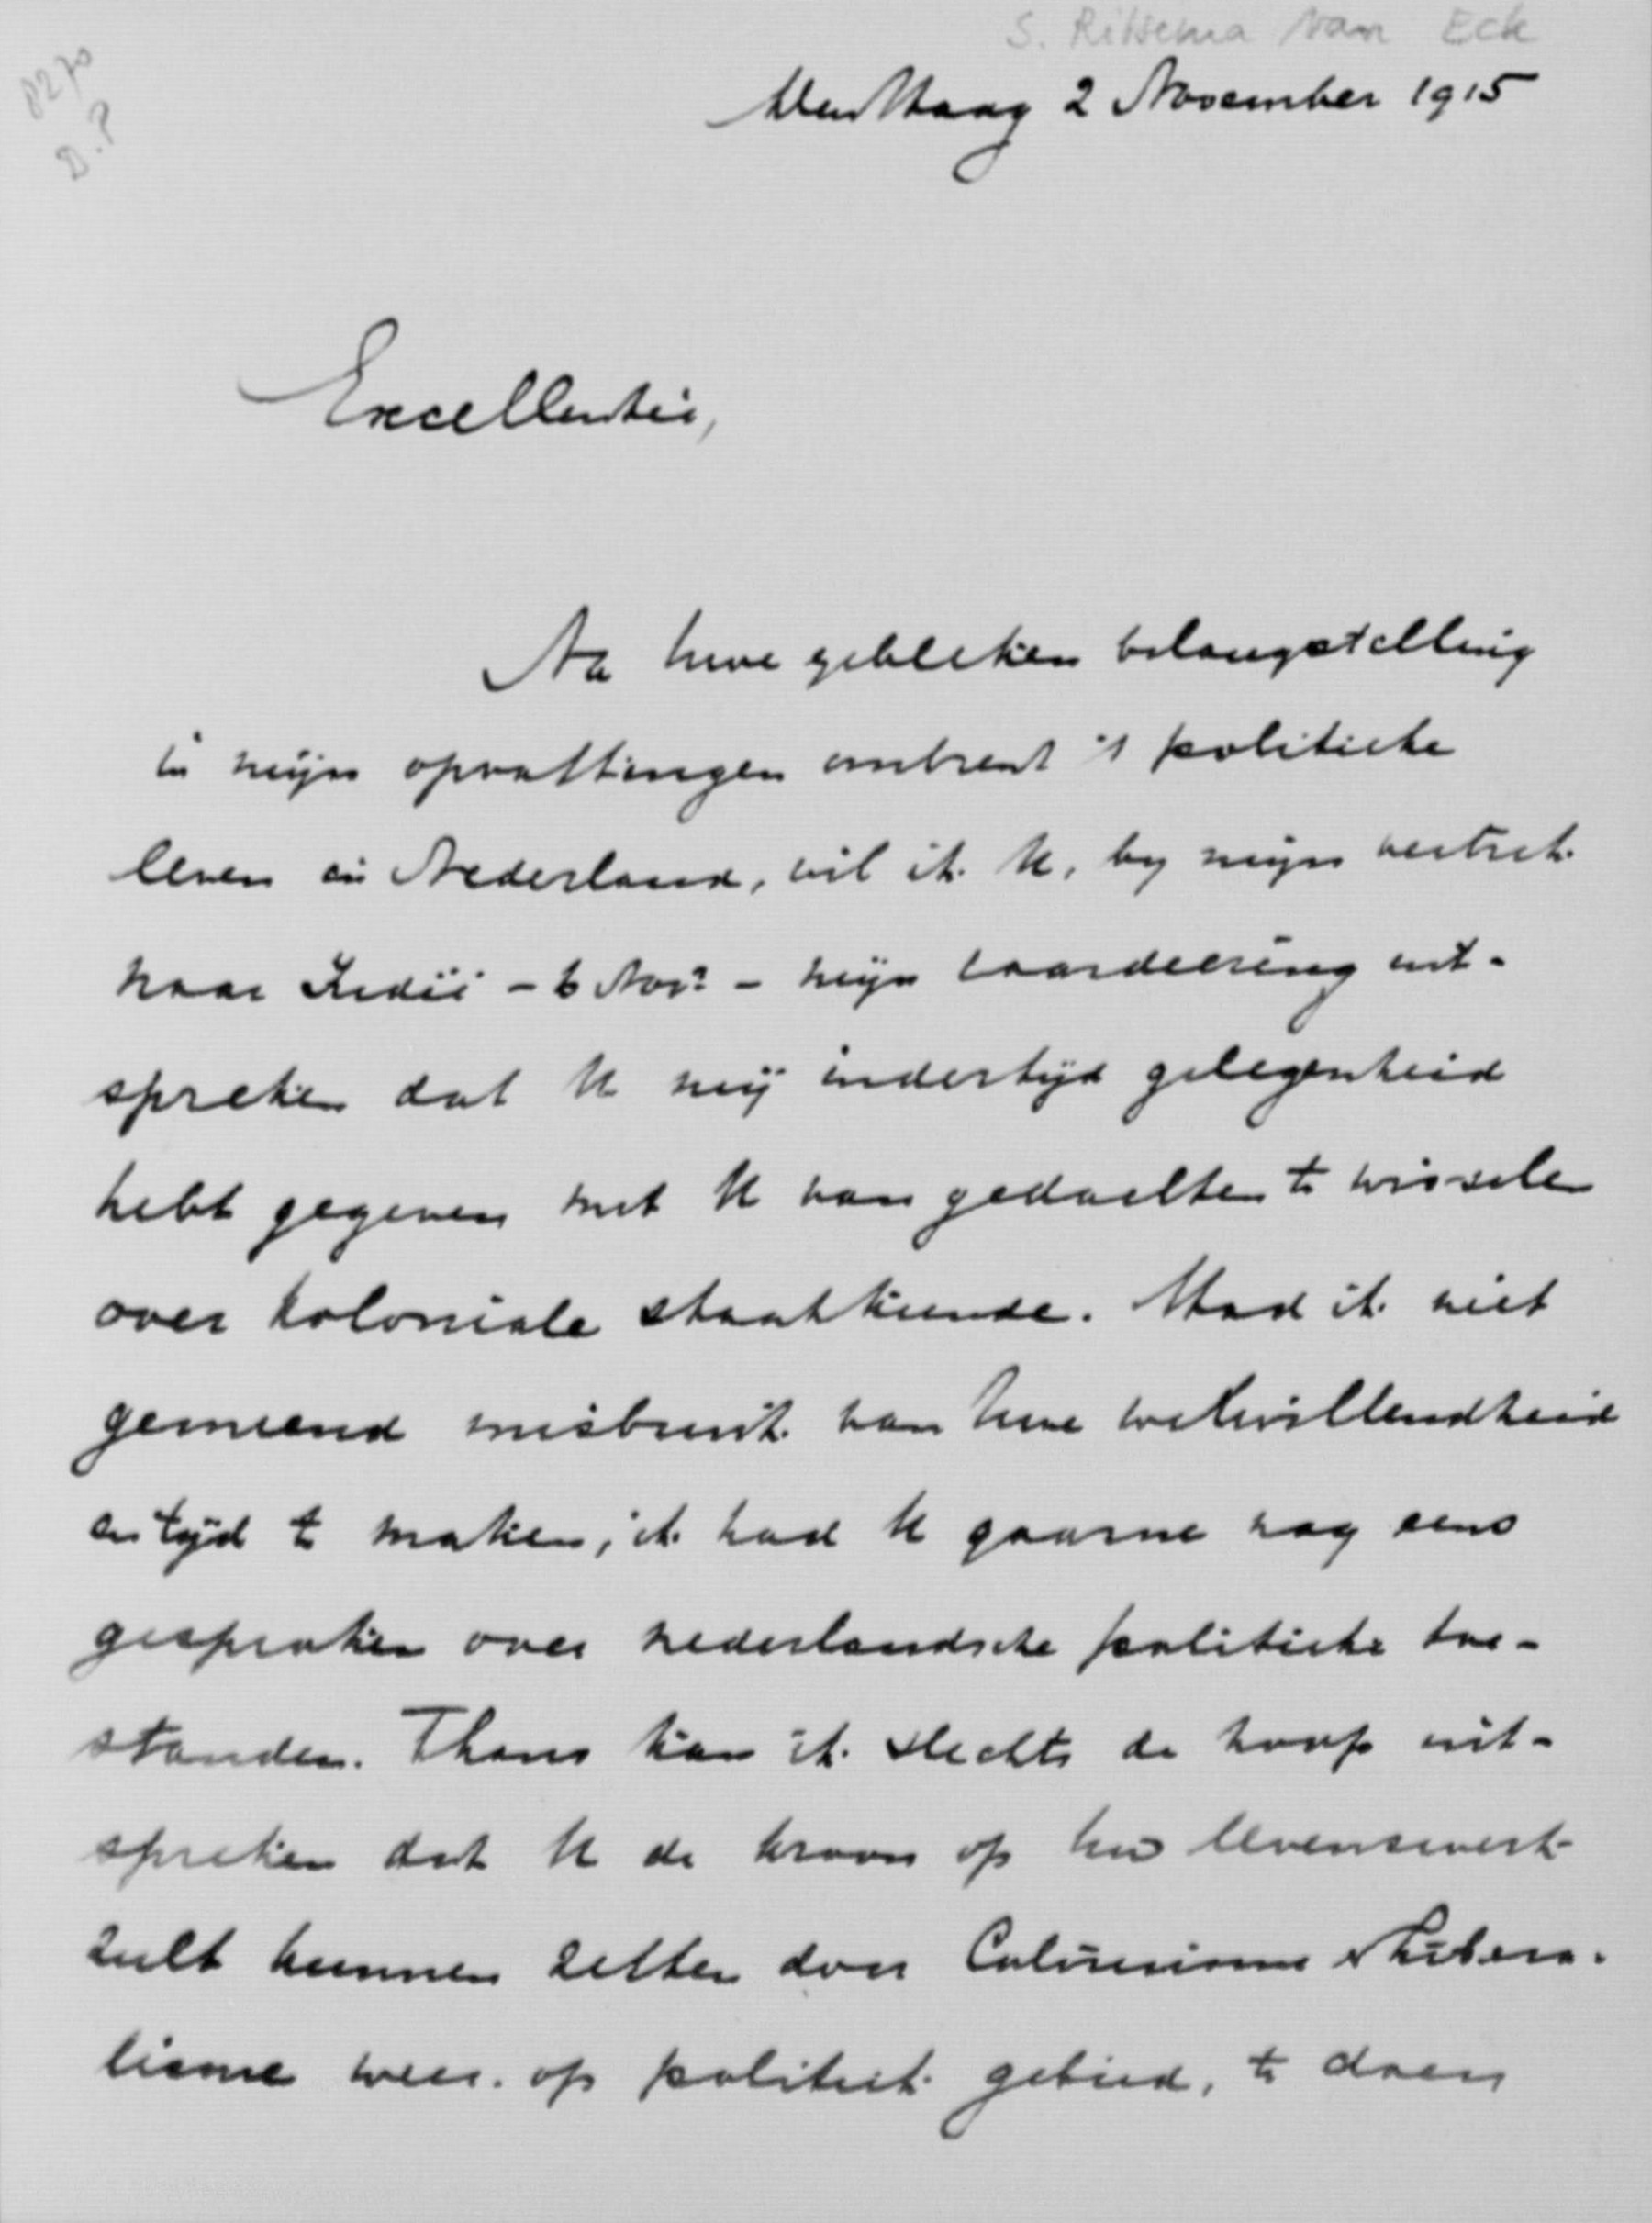 S. Ritsema van Eck
8270
D.?
den Haag 2 November 1915
Excellentie,
Na Uwe gebleken belangstelling
in mijn opvattingen omtrent 't politieke
leven in Nederland, wil ik U, by mijn vertrek
naar Indië - 6 Nov. - mijn waardeering uit-
spreken dat U mij indertijd gelegenheid
hebt gegeven met U van gedachten te wisselen
over koloniale staatkunde. Had ik niet
gemeend misbruik van Uwe welwillendheid
en tijd te maken, ik had U gaarne nog eens
gesproken over nederlandsche politieke toe-
standen. Thans kan ik slechts de hoop uit-
spreken dat U de kroon op Uw levenswerk
zult kunnen zetten door Calvinisme & Libera-
lisme weer op politiek gebied, te doen